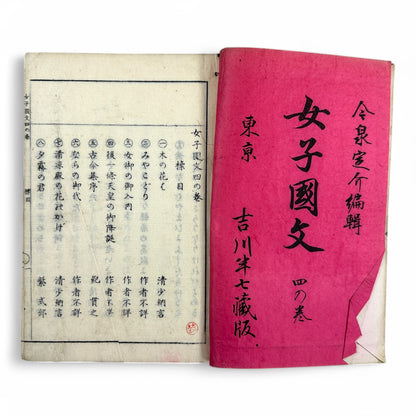 今泉定介編輯
女子國文
四の巻
東京
吉川半七藏版
女子國文四の巻
標目
一 木の花く 清少納言
二 みやこどり 作者不詳
三 女御の御入内 作者不詳
四 後一條天皇の御降誕 作者不詳
五 古今集序 紀貫之
六 堅らの御代 作者不詳
七 清凉殿の花政か 清少納言
八 夕霧の君 紫式部
女子國文四の巻
標目